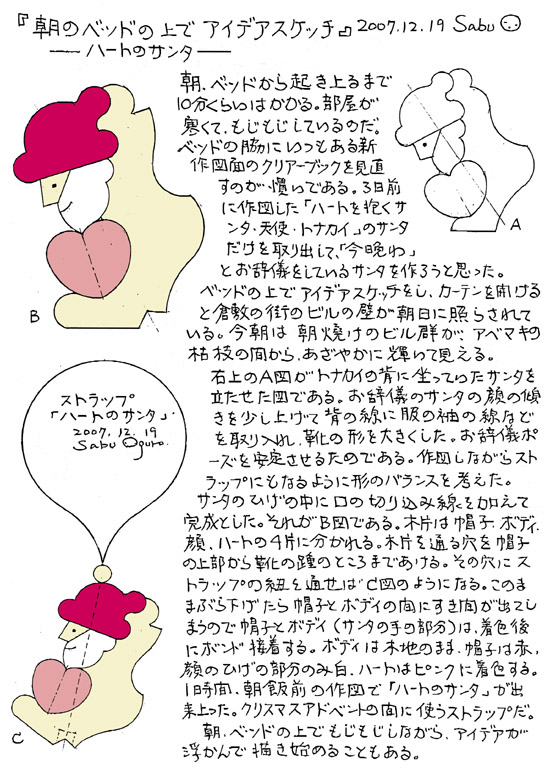 『朝のベッドの上でアイデアスケッチ』2007.12.19 Sabu
―ハートのサンタ―
朝、ベッドから起き上るまで
10分くらいはかかる。部屋が
寒くて、もじもじしているのだ。
ベッドの脇にいつもある新
作図面のクリアーブックを見直
すのが慣いである。3日前
に作図した「ハートを抱くサ
ンタ・天使・トナカイ」のサンタ
だけを取り出して、「今晩わ」
とお辞儀をしているサンタを作ろうと思った。
ベッドの上でアイデアスケッチをし、カーテンを開ける
と倉敷の街のビルの壁が朝日に照らされて
いる。今朝は朝焼けのビル群が、アベマキの
枯枝の間から、あざやかに輝いて見える。
右上のA図がトナカイの背に坐っていたサンタを
立たせた図である。お辞儀のサンタの顔の傾
きを少し上げて背の線に服の袖の線など
を取り入れ、靴の形を大きくした。お辞儀ポ
ーズを安定させるためである。作図しながらスト
ラップにもなるように形のバランスを考えた。
サンタのひげの中に口の切り込み線を加えて
完成とした。それがB図である。木片は帽子、ボディ、
顔、ハートの4片に分かれる。木片を通る穴を帽子
の上部から靴の踵のところまであける。その穴にス
トラップの紐を通せばC図のようになる。このま
まぶら下げたら帽子とボディの間にすき間が出てし
まうので帽子とボディ(サンタの手の部分)は、着色後
にボンド接着する。ボディは木地のまま、帽子は赤、
顔のひげの部分のみ白、ハートはピンクに着色する。
1時間、朝飯前の作図で「ハートのサンタ」が出
来上った。クリスマスアドベントの間に使うストラップだ。
朝、ベッドの上でもじもじしながら、アイデアが
浮かんで描き始めることもある。
A
B
ストラップ
「ハートのサンタ」
2007.12.19
Sabu Oguro.
C